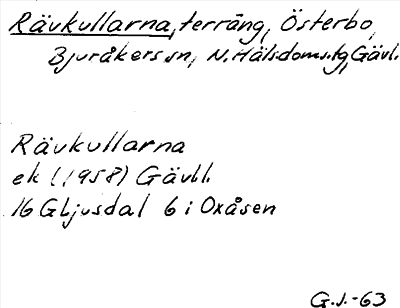 Rävkullarna, terräng, Österbo,
Bjuråkers sn, N. Hälsdoms.tg, Gävl.
Rävkullarna
ek (1958) Gävl.l.
16G Ljusdal 6 i Oxåsen
G.J.-63